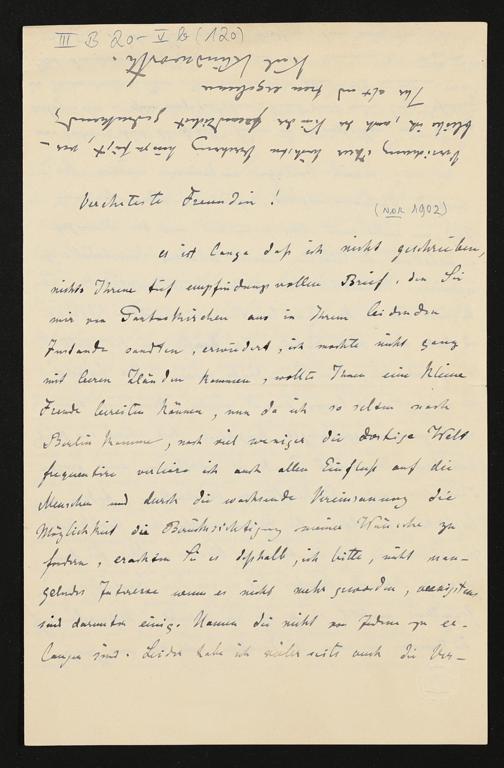 III B 20 - V b (120)
Verehrteste Freundin!
(NOV 1902)
es ist lange daß ich nicht geschrieben,
nichts Ihrem tief empfindungsvollen Brief, den Sie
mir von Partenkirchen aus in Ihrem leidenden
Zustande sandten, erwidert, ich mochte nicht ganz
mit leeren Händen kommen, wollte Ihnen eine kleine
Freude bereiten können, nun da ich so selten nach
Berlin komme, noch viel weniger die dortige Welt
frequentire verliere ich auch allen Einfluß auf die
Menschen und durch die wachsende Vereinsamung die
Möglichkeit die Berücksichtigung meiner Wünsche zu
fordern, erachten Sie es deßhalb, ich bitte, nicht man-
gelndes Interesse wenn es nicht mehr geworden, wenigstens
sind darunter einige Namen die nicht von Jedem zu er-
langen sind. Leider habe ich auch die Ver-
Versicherung Ihrer höchsten Verehrung hinzufügt, ver-
bleibe ich, auch der gedenkend,
Ihr alt und treu ergebener
Karl Klindworth.